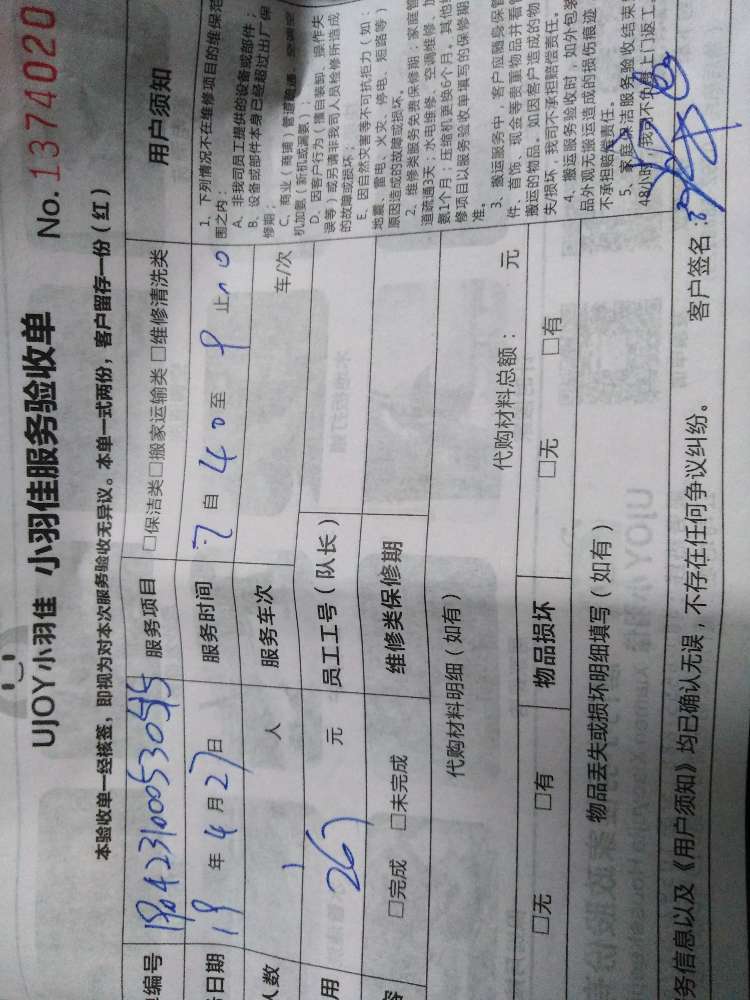 UJOY小羽佳 小羽佳服务验收单
No. 1374020
本验收单一经核签，即视为对本次服务验收无异议。本单一式两份，客户留存一份（红）
单编号 服务项目 □保洁类□搬家运输类□维修清洗类
日期 19年4月27日 服务时间 7 自 40 至 9 止
人数 1 人 服务车次 车/次
用 267 元 员工工号（队长）
□完成 □未完成 维修类保修期
代购材料明细（如有） 代购材料总额： 元
□无 □有 物品损坏 □无 □有
物品丢失或损坏明细填写（如有）
务信息以及《用户须知》均已确认无误，不存在任何争议纠纷。 客户签名：
用户须知
1、下列情况不在维修项目的维保范
围之内：
A、非我司员工提供的设备或部件；
B、设备或部件本身已经超过出厂保
修期；
C、商业（商铺）管道疏通、空调空
机加氨（新机或漏氨）；
D、因客户行为（擅自装卸、操作失
误等）或另请非我司人员检修所造成
的故障或损坏；
E、因自然灾害等不可抗拒力（如：
地震、雷电、火灾、停电、短路等）
原因造成的故障或损坏。
2、维修类服务免费保修期：家庭管
道疏通3天；水电维修、空调维修、加
氨1个月；压缩机更换6个月。其他维
修项目以服务验收单填写的保修期
准。
3、搬运服务中，客户应随身保管
件、首饰、现金等贵重物品并看管
搬运的物品。如因客户造成的物
失/损坏，我司不承担赔偿责任。
4、搬运服务验收时，如外包装
品外观无搬运造成的损伤痕迹
不承担赔偿责任。
5、家庭保洁服务验收结束
48小时，我司不免费上门返工。